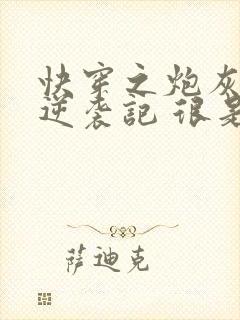 快穿之炮灰
逆袭記 很是
萨迪克